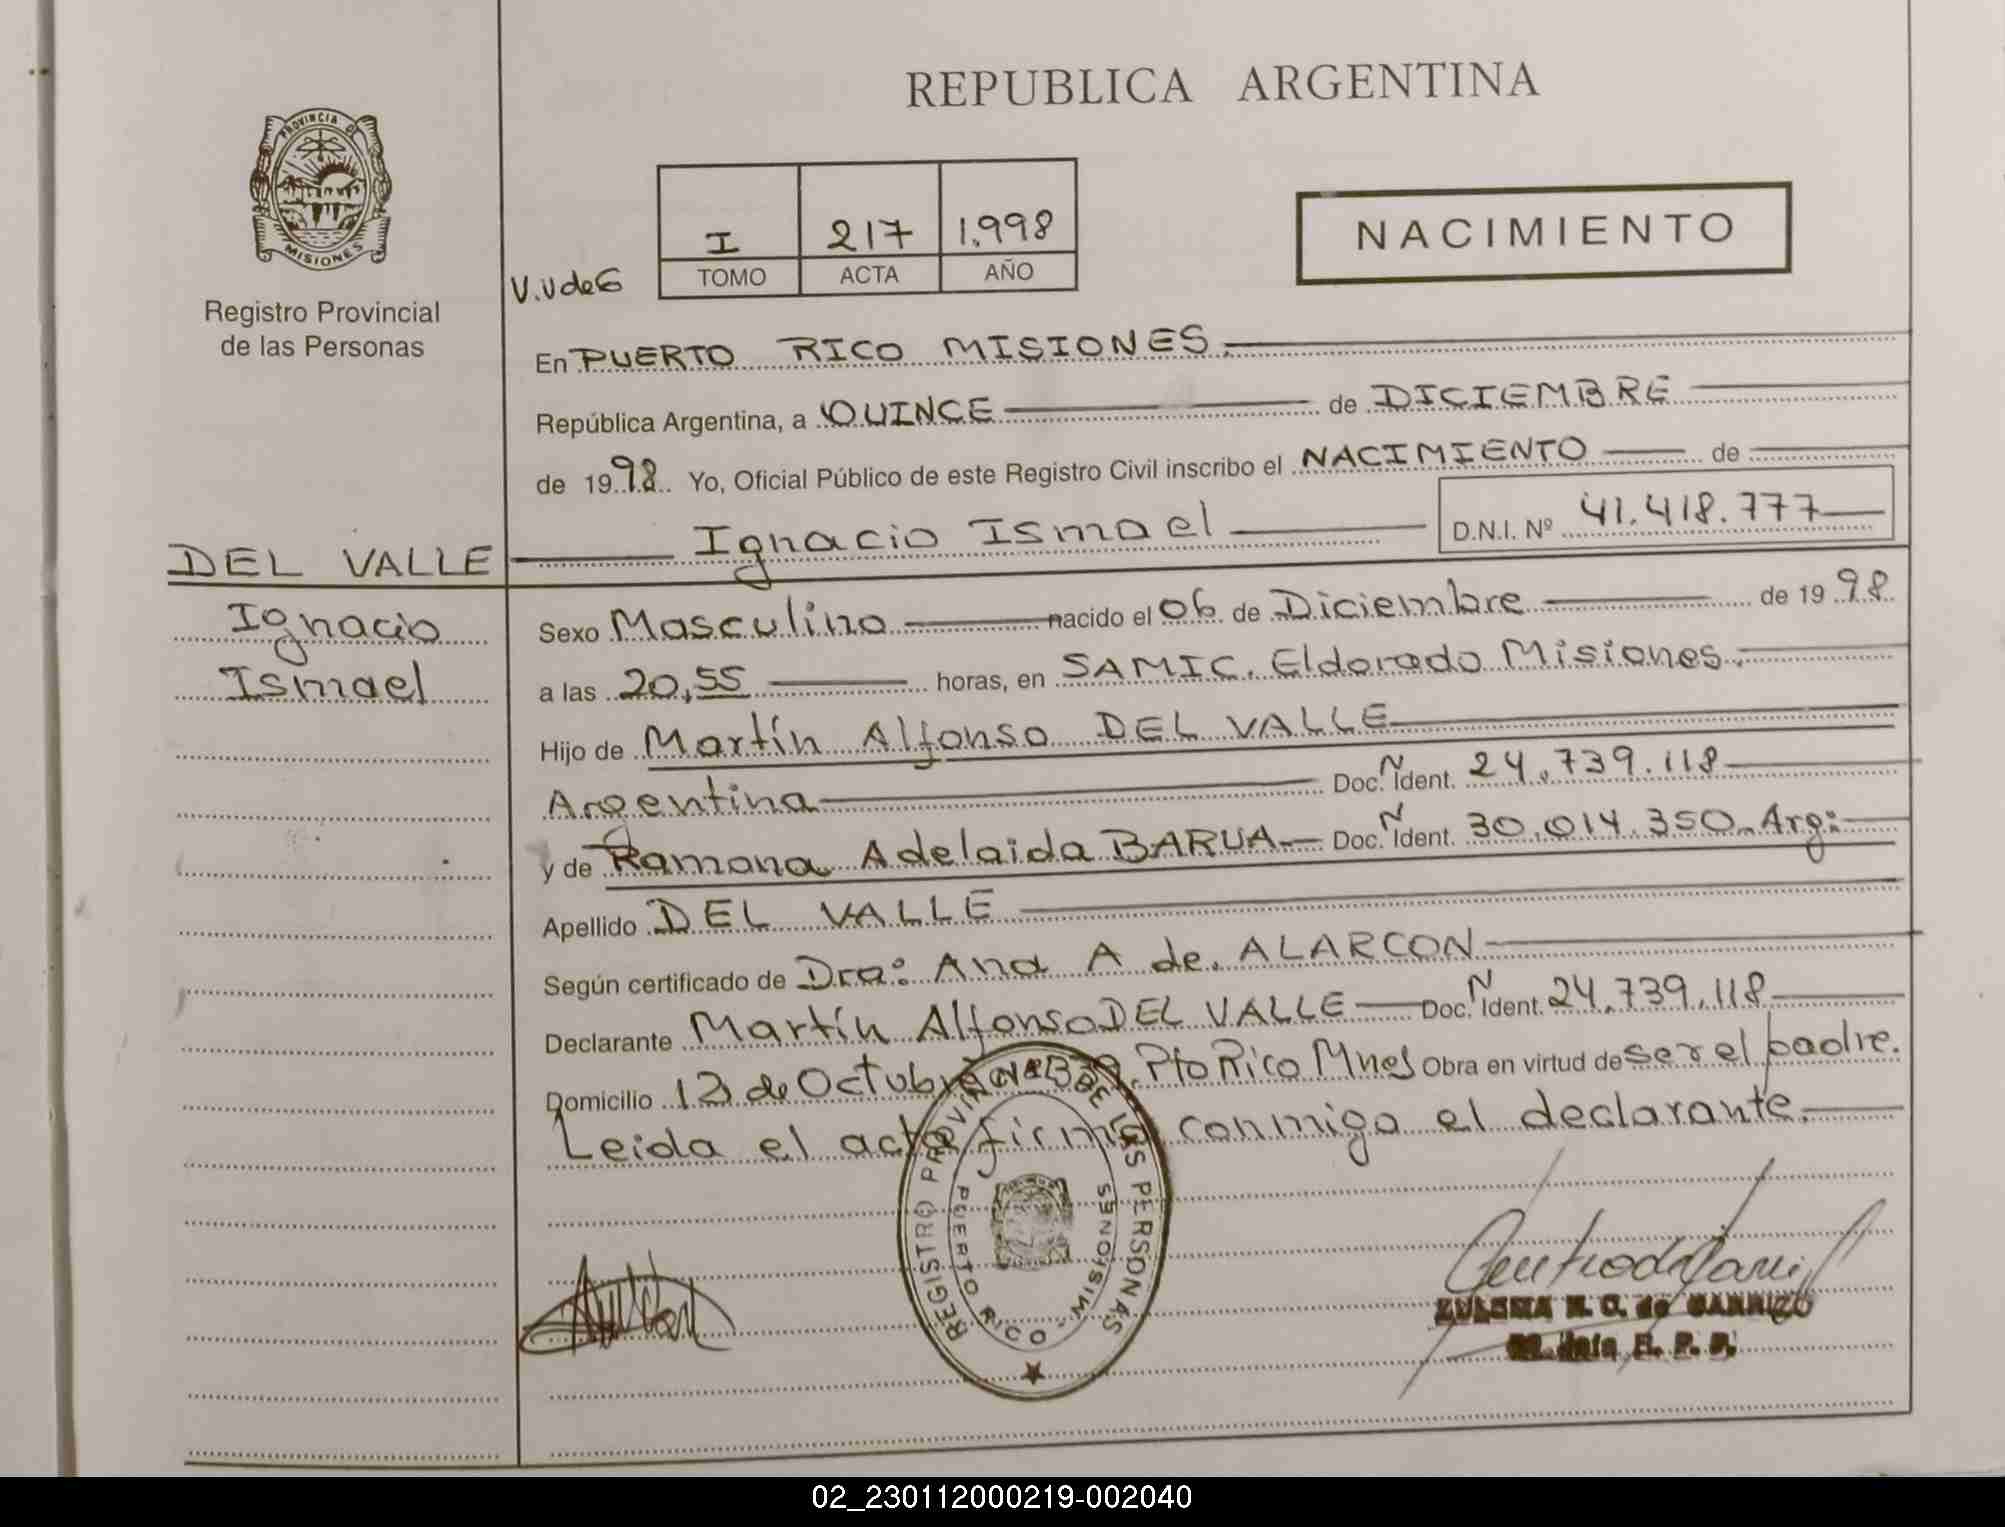 REPUBLICA ARGENTINA
PROVINCIA DE
MISIONES
Registro Provincial
de las Personas
I 217 1.998
TOMO ACTA AÑO
NACIMIENTO
V.V de G
En PUERTO RICO MISIONES.
República Argentina, a QUINCE de DICIEMBRE
de 1998 Yo, Oficial Público de este Registro Civil inscribo el NACIMIENTO de
Ignacio Ismael D.N.I. Nº 41.418.777
DEL VALLE
Ignacio
Ismael
Sexo Masculino nacido el 06 de Diciembre de 1998
a las 20,55 horas, en SAMIC. Eldorado Misiones.
Hijo de Martín Alfonso DEL VALLE
Argentina Doc. N Ident. 24.739.118
y de Ramona Adelaida BARUA Doc. N Ident. 30.014.350. Arg:
Apellido DEL VALLE
Según certificado de Dra: Ana A de. ALARCON
Declarante Martín Alfonso DEL VALLE Doc. N Ident. 24.739.118
Domicilio 12 de Octubre Pto Rico Mnes Obra en virtud de ser el padre.
Leida el acta firma conmigo el declarante.
REGISTRO PROVINCIAL DE LAS PERSONAS
PUERTO RICO - MISIONES
R. P. P.
02_230112000219-002040